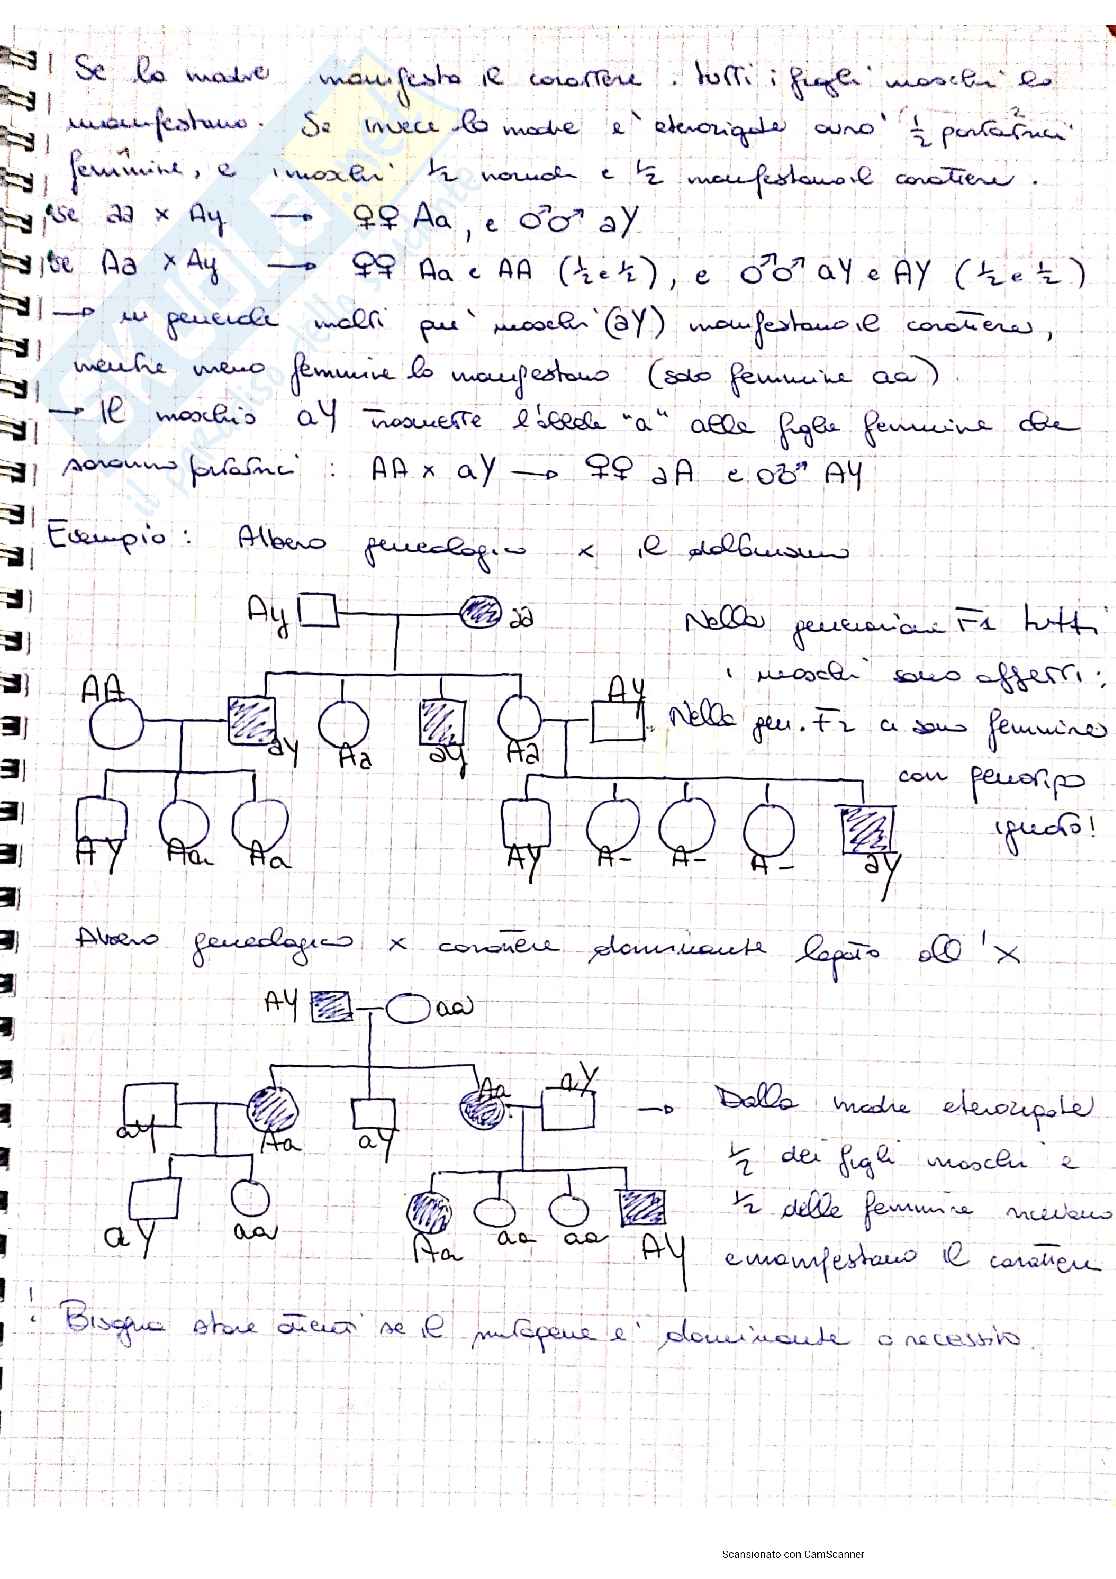 Se la madre manifesta il carattere. tutti i figli maschi lo
manifestano. Se invece la madre e' eterozigote avrà 1/2 portatrici 2
femmine, 1 e i maschi 1/2 normali e 1/2 manifestano il carattere.
se aa x Ay → ♀♀ Aa, e ♂♂ aY
se Aa x Ay → ♀♀ Aa e AA (1/2 e 1/2), e ♂♂ aY e AY (1/2 e 1/2)
→ in generale molti piu' maschi (aY) manifestano il carattere,
mentre meno femmine lo manifestano (solo femmine aa).
→ Il maschio aY trasmette l'allele "a" alle figlie femmine che
saranno portatrici : AA x aY → ♀♀ aA e ♂♂ AY
Esempio: Albero genealogico x il daltonismo
Ay aa
Nella generazione F1 tutti
i maschi sono affetti;
AA aY Aa aY Aa AY
Nella gen. F2 ci sono femmine
con genotipo
ignoto!
AY Aa Aa AY A- A- A- aY
Albero genealogico x carattere dominante legato all'X
AY aa
aY Aa aY Aa aY
→ Dalla madre eterozigote
1/2 dei figli maschi e
1/2 delle femmine ricevono
e manifestano il carattere
aY aa Aa aa aa AY
! Bisogna stare attenti se il mutagene e' dominante o recessivo.
SKUOLA.net
il paradiso dello studente
Scansionato con CamScanner